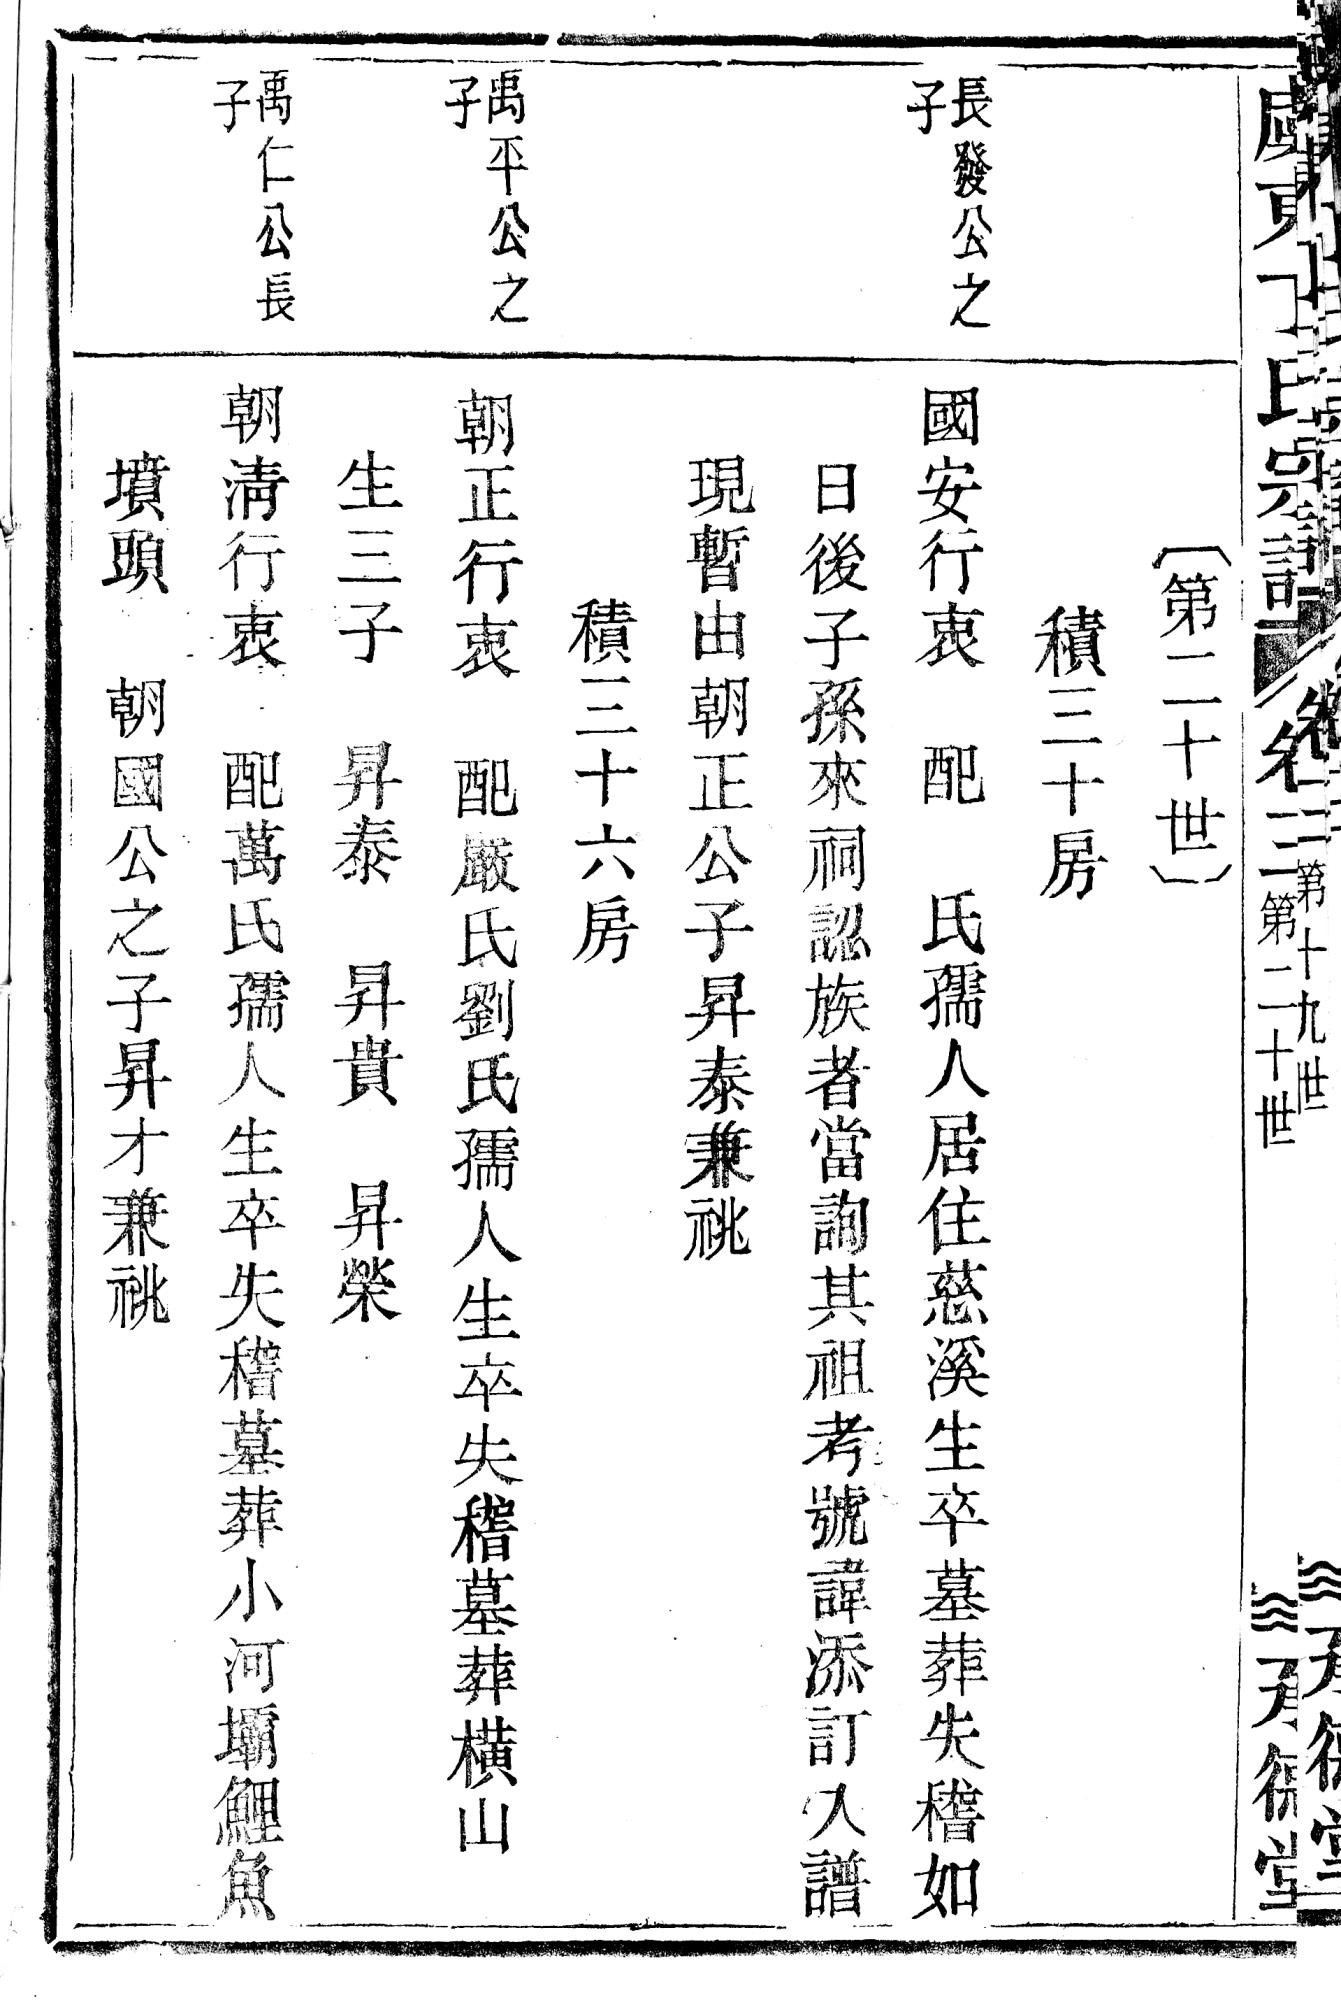 氏宗譜 卷三 第二十世
第十九世
〔第二十世〕
積三十房
長發公之
子
國安行衷 配 氏孺人居住慈溪生卒墓葬失稽如
日後子孫來祠認族者當詢其祖考號諱添訂入譜
現暫由朝正公子昇泰兼祧
積三十六房
禹平公之
子
朝正行衷 配嚴氏劉氏孺人生卒失稽墓葬橫山
生三子 昇泰 昇貴 昇榮
禹仁公長
子
朝淸行衷 配萬氏孺人生卒失稽墓葬小河壩鯉魚
墳頭 朝國公之子昇才兼祧
承德堂